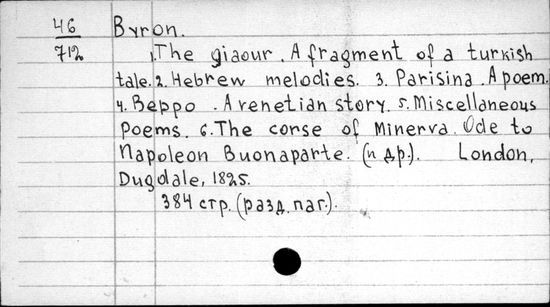 46 Byron.
712 1. The giaour. A fragment of a turkish
tale. 2. Hebrew melodies. 3. Parisina. A poem.
4. Beppo. A venetian story. 5. Miscellaneous
Poems. 6. The corse of Minerva. Ode to
Napoleon Buonaparte. (и др.). London,
Dugdale, 1825.
384 стр. (разд. паг.).